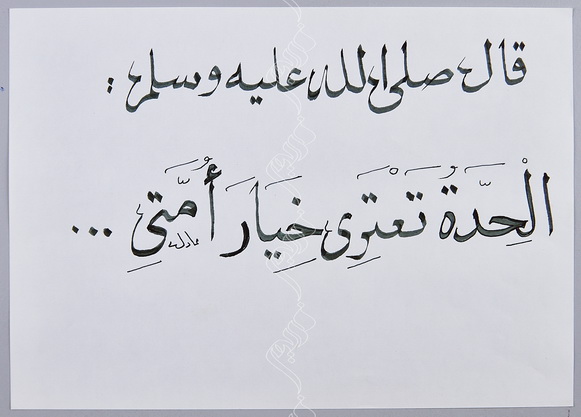 قال صلى الله عليه وسلم :
الْحِدَّةُ تَعْتَرِى خِيَارَ أُمَّتِى ...